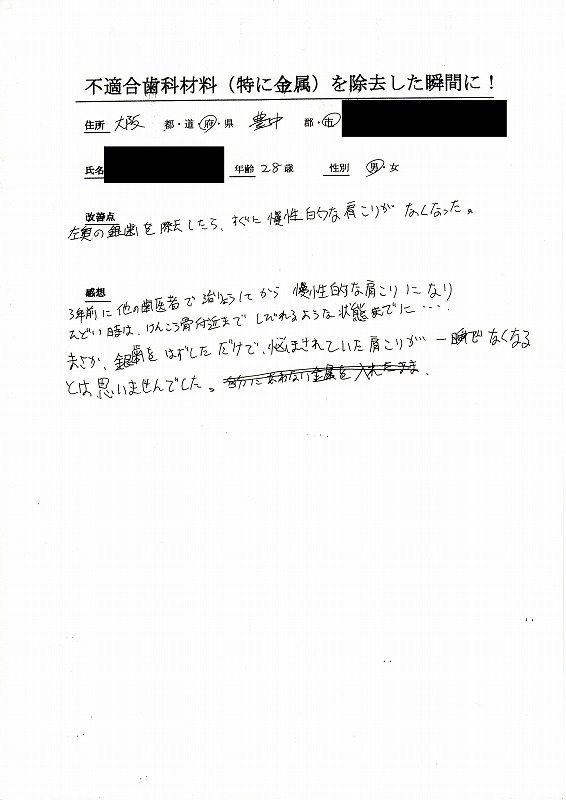 不適合歯科材料（特に金属）を除去した瞬間に！
住所 大阪 都・道・府・県 豊中 郡・市
氏名 年齢 28歳 性別 男・女
改善点
左奥の銀歯を除去したら、すぐに慢性的な肩こりがなくなった。
感想
3年前に他の歯医者で治りょうしてから慢性的な肩こりになり
ひどい時は、けんこう骨付近までしびれるような状態までに・・・・
まさか、銀歯をはずしただけで、悩まされていた肩こりが一瞬でなくなる
とは思いませんでした。自分にあわない金属を入れたまま.